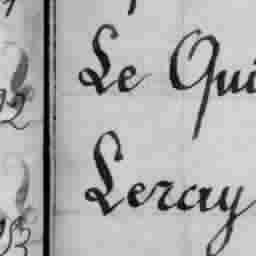 Le Qui
Leray